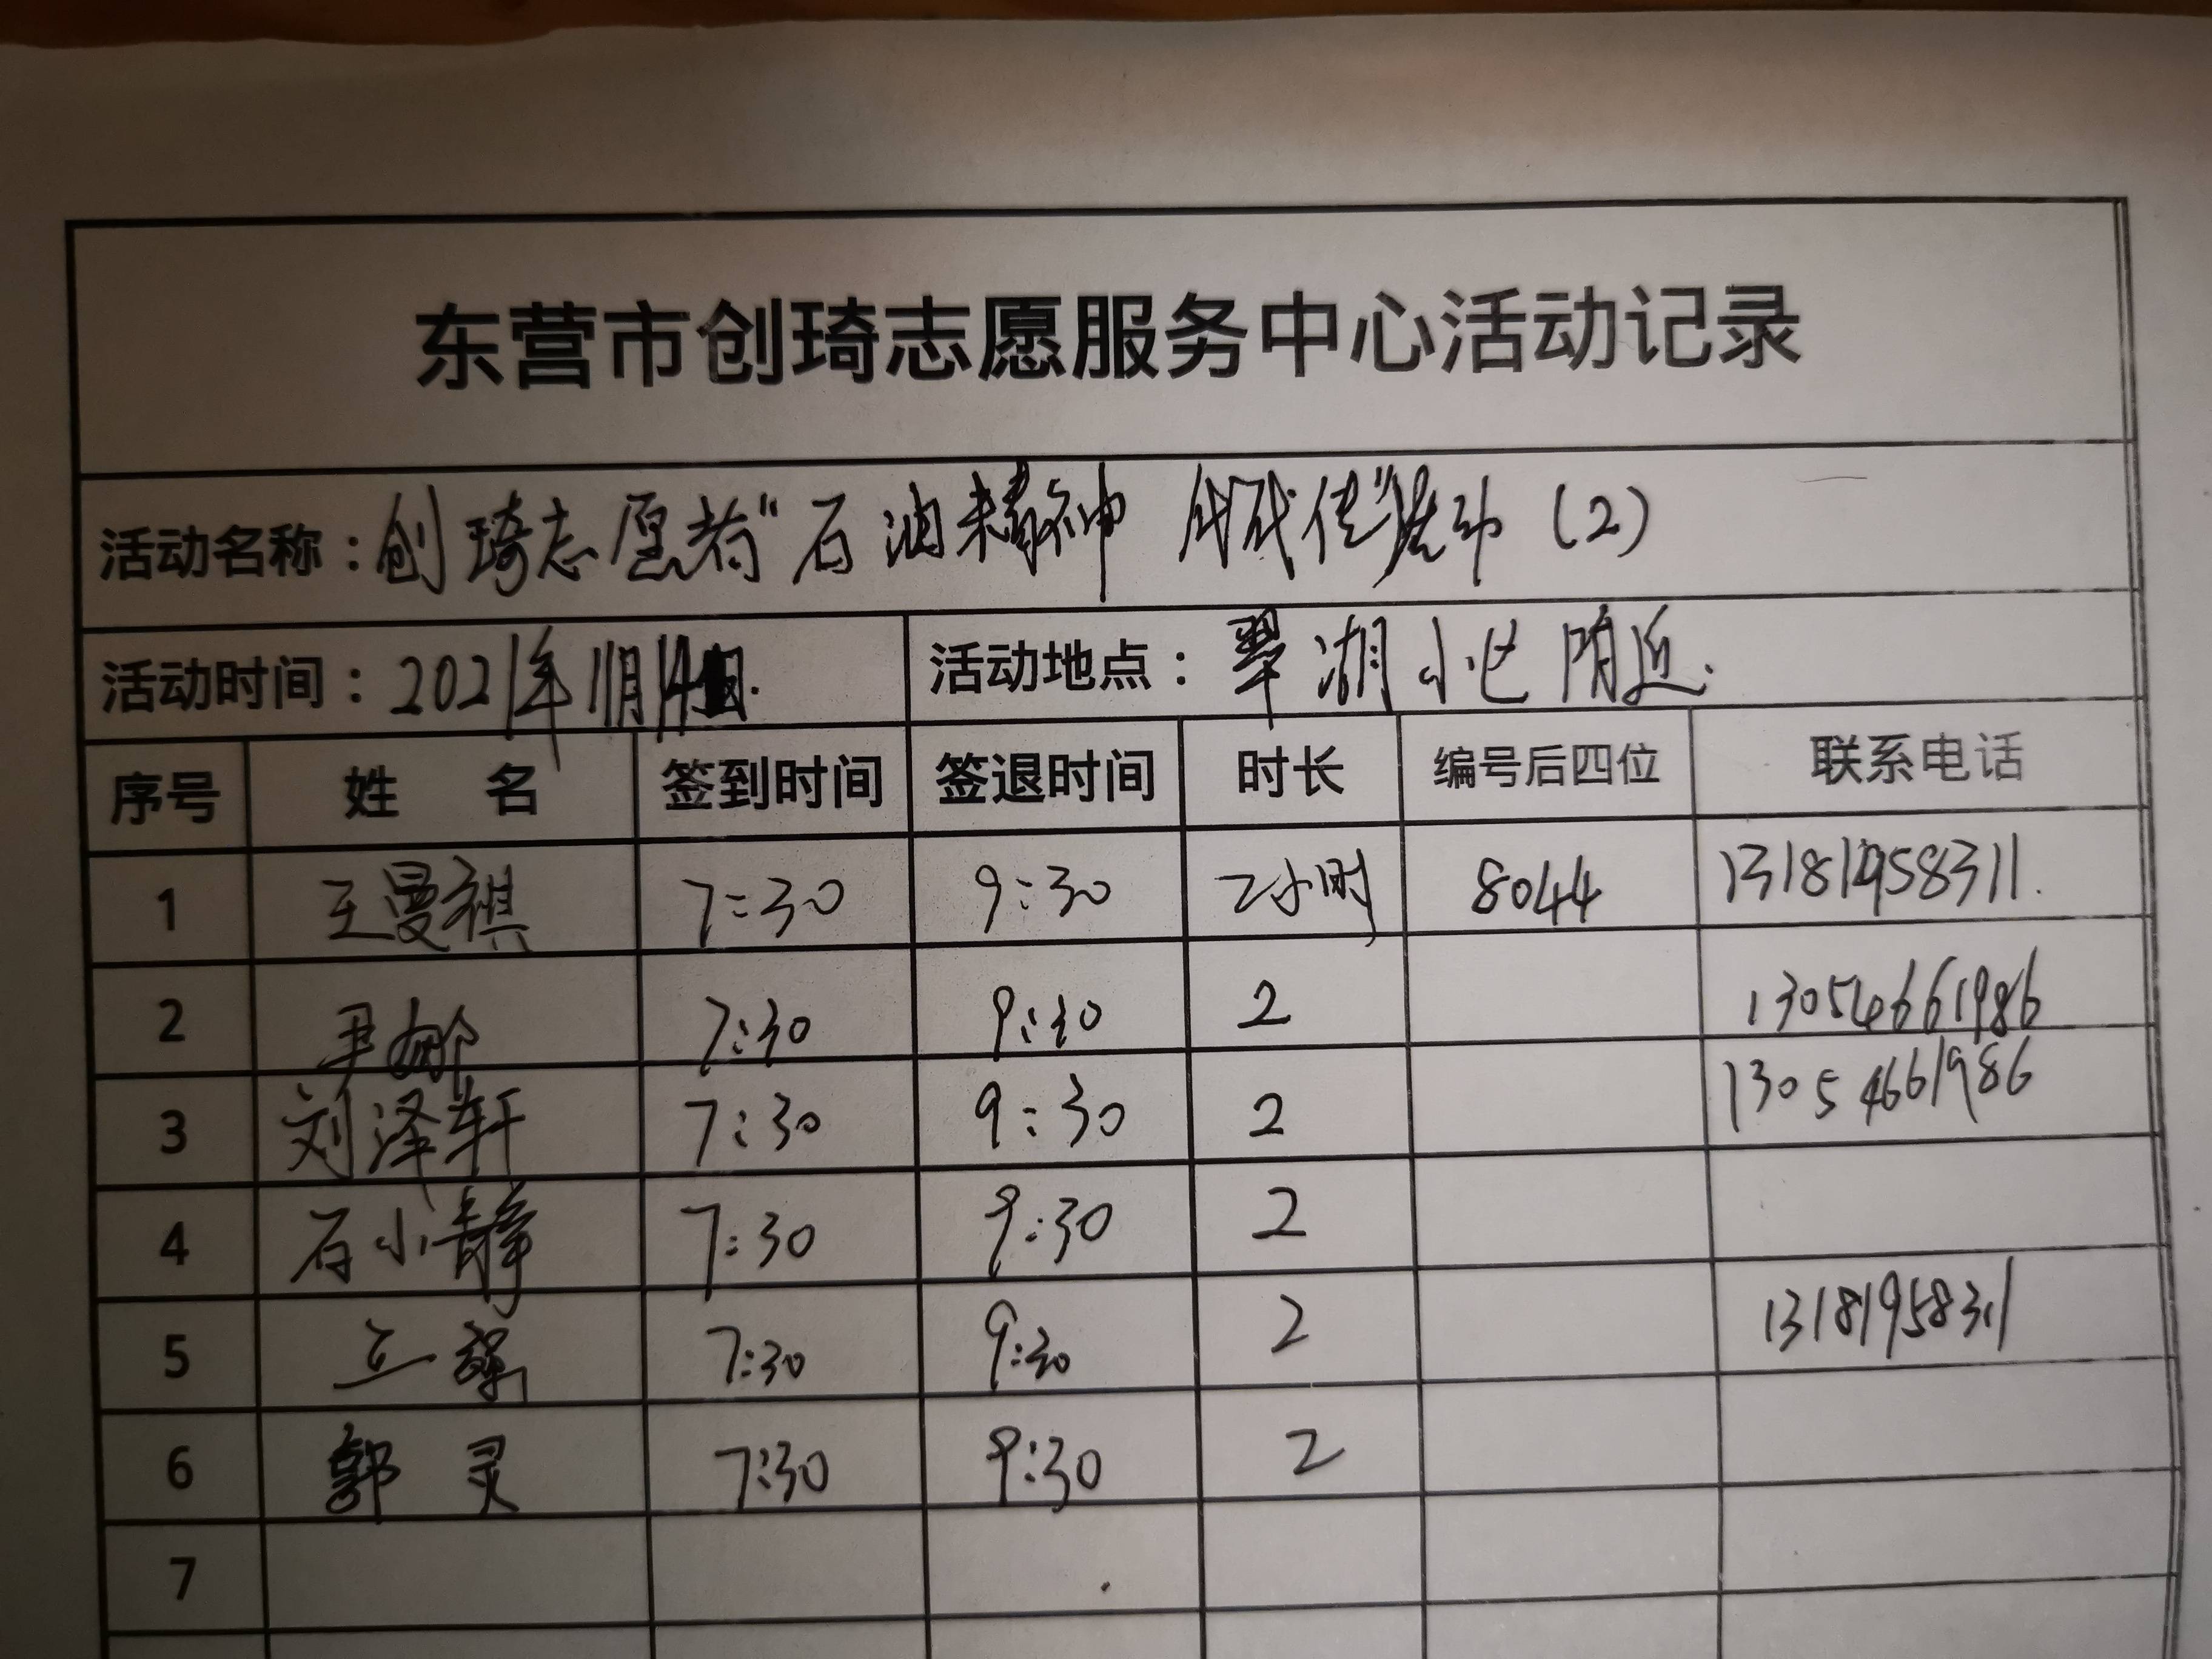 东营市创琦志愿服务中心活动记录
活动名称：创琦志愿者"石油精神 代代传"活动（2）
活动时间：2021年11月14日. 活动地点：翠湖小区附近.
序号 姓 名 签到时间 签退时间 时长 编号后四位 联系电话
1 王曼祺 7:30 9:30 2小时 8044 13181958311.
2 尹娜 7:30 9:30 2 13054661986
3 刘泽轩 7:30 9:30 2 13054661986
4 石小静 7:30 9:30 2
5 7:30 9:30 2 13181958311
6 郭灵 7:30 9:30 2
7